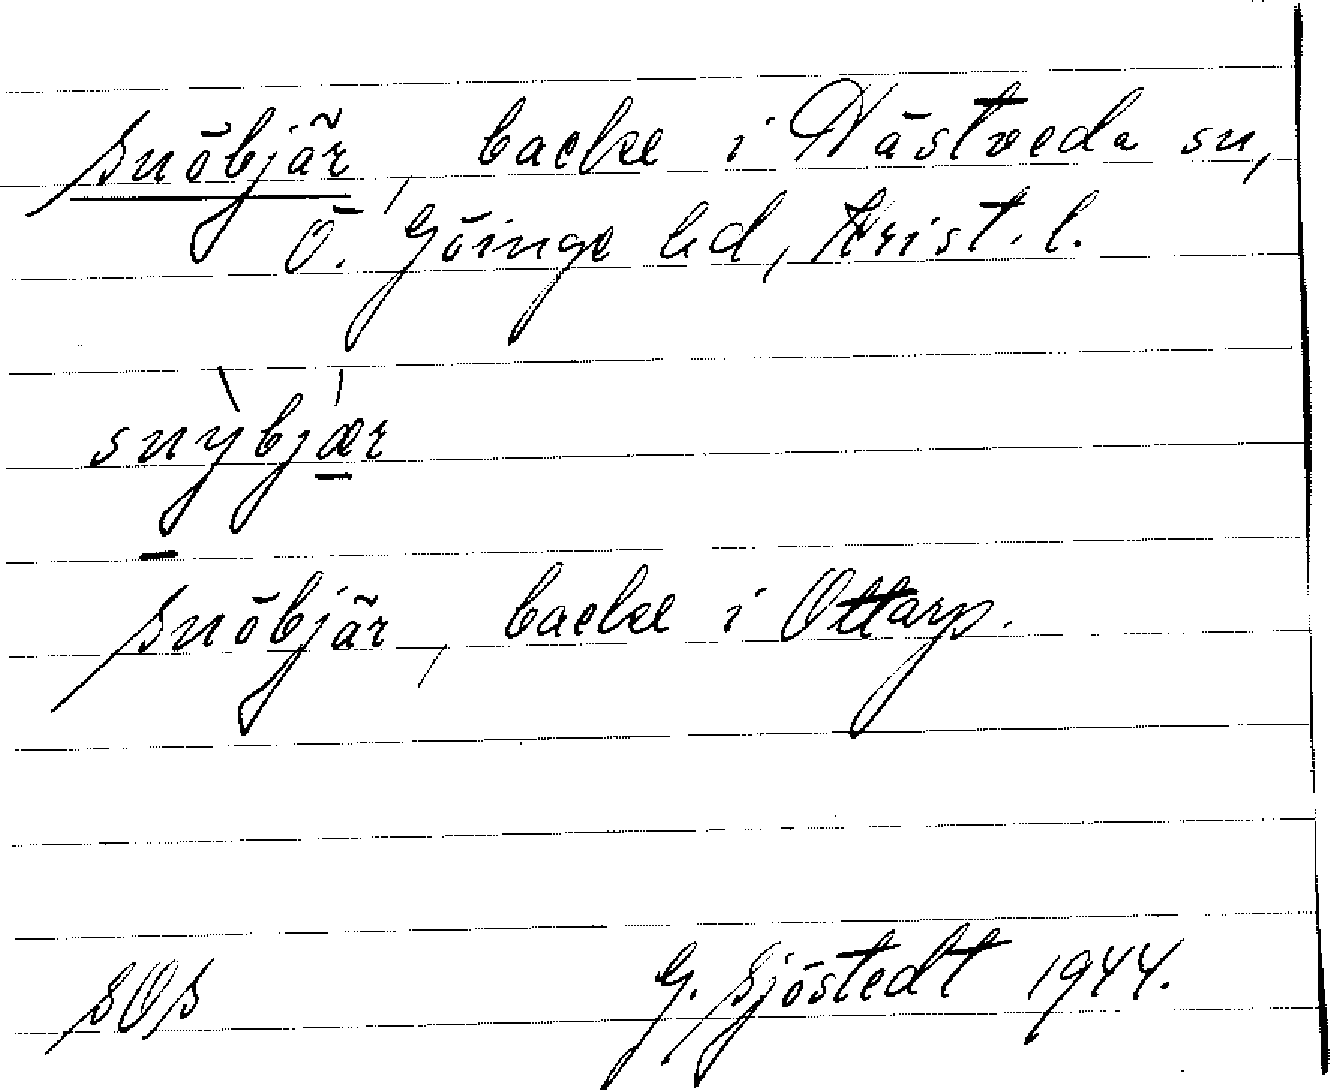 Snöbjär, backe i Nästveda sn,
Ö. Göinge hd, Krist. l.
snỳbjǽr
Snöbjär, backe i Ottarp.
SOS G. Sjöstedt 1944.